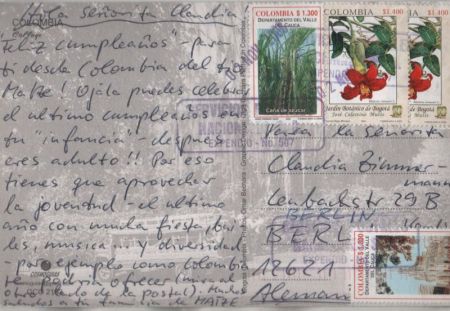 Hola Señorita Claudia!
"Feliz cumpleaños" - para
ti desde Colombia del tío
Matze! Ojalá puedes celebrar
el ultimo cumpleaños en
tu "infancia" - después
eres adulto!!! Por eso
tienes que aprovechar
la joventud - el ultimo
año con mucha fiesta, bai-
les, musica ... y diversidad
- por ejemplo como Colombia
te podría ofrecer (mira al
otro lado de la postal). Muchos
saludos a tu familia de MATZE
COLOMBIA
COLOMBIA $1.300
DEPARTAMENTO DEL VALLE
DEL CAUCA
Caña de azúcar
COLOMBIA $1.400
Jardín Botánico de Bogotá
José Celestino Mutis
COLOMBIA $1.400
Jardín Botánico de Bogotá
José Celestino Mutis
SERVICIOS
NACIONAL
EXPENDIO - No. 567
la señorita
Claudia
Lenbachstr 29 B
BERLIN
BERL
12621
Aleman
COLOMBIA $1.000
DEPARTAMENTO DEL VALLE
DEL CAUCA